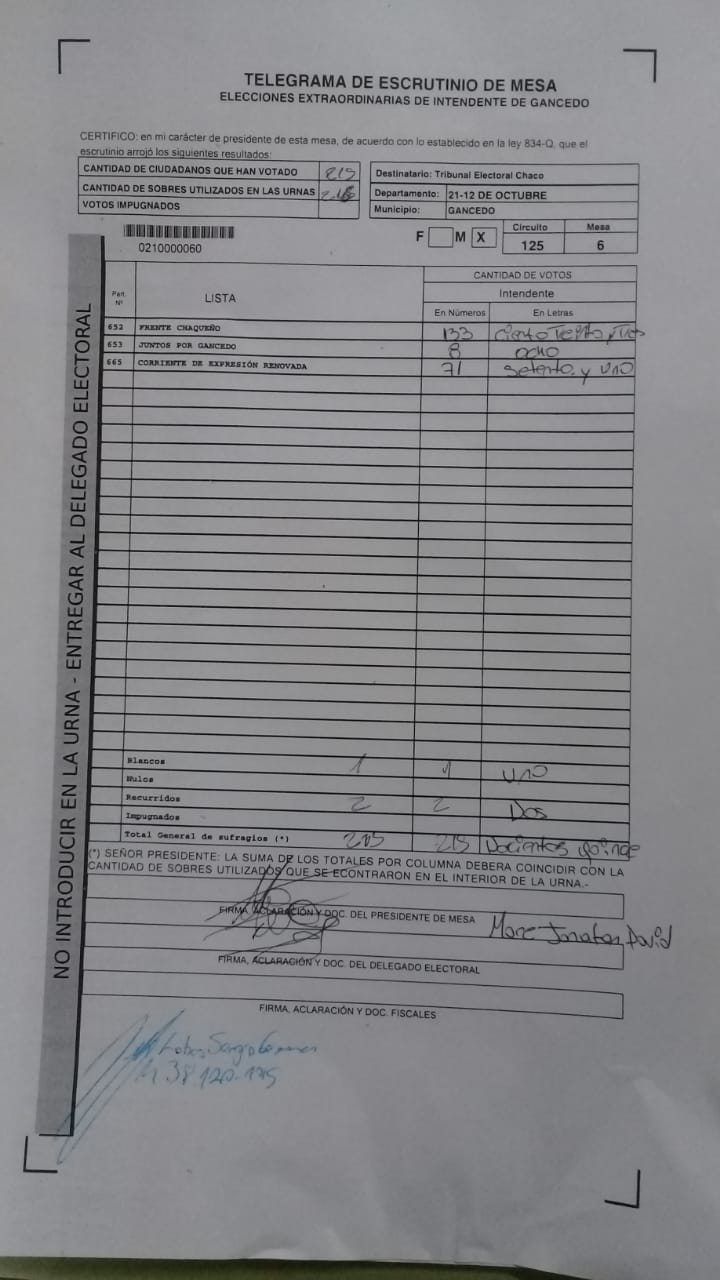 TELEGRAMA DE ESCRUTINIO DE MESA
ELECCIONES EXTRAORDINARIAS DE INTENDENTE DE GANCEDO
CERTIFICO: en mi carácter de presidente de esta mesa, de acuerdo con lo establecido en la ley 834-Q, que el
escrutinio arrojó los siguientes resultados:
CANTIDAD DE CIUDADANOS QUE HAN VOTADO 215
CANTIDAD DE SOBRES UTILIZADOS EN LAS URNAS
VOTOS IMPUGNADOS
Destinatario: Tribunal Electoral Chaco
Departamento: 21-12 DE OCTUBRE
Municipio: GANCEDO
0210000060
F M X
Circuito Mesa
125 6
CANTIDAD DE VOTOS
Part. Nº LISTA Intendente
En Números En Letras
652 FRENTE CHAQUEÑO 133
653 JUNTOS POR GANCEDO 8 ocho
665 CORRIENTE DE EXPRESIÓN RENOVADA 71 setenta y uno
Blancos 1 1 uno
Nulos
Recurridos 2 2 Dos
Impugnados
Total General de sufragios (*) 215 215 Docientos quince
(*) SEÑOR PRESIDENTE: LA SUMA DE LOS TOTALES POR COLUMNA DEBERA COINCIDIR CON LA
CANTIDAD DE SOBRES UTILIZADOS QUE SE ECONTRARON EN EL INTERIOR DE LA URNA.-
FIRMA, ACLARACIÓN Y DOC. DEL PRESIDENTE DE MESA
Jonatan David
FIRMA, ACLARACIÓN Y DOC. DEL DELEGADO ELECTORAL
FIRMA, ACLARACIÓN Y DOC. FISCALES
NO INTRODUCIR EN LA URNA - ENTREGAR AL DELEGADO ELECTORAL